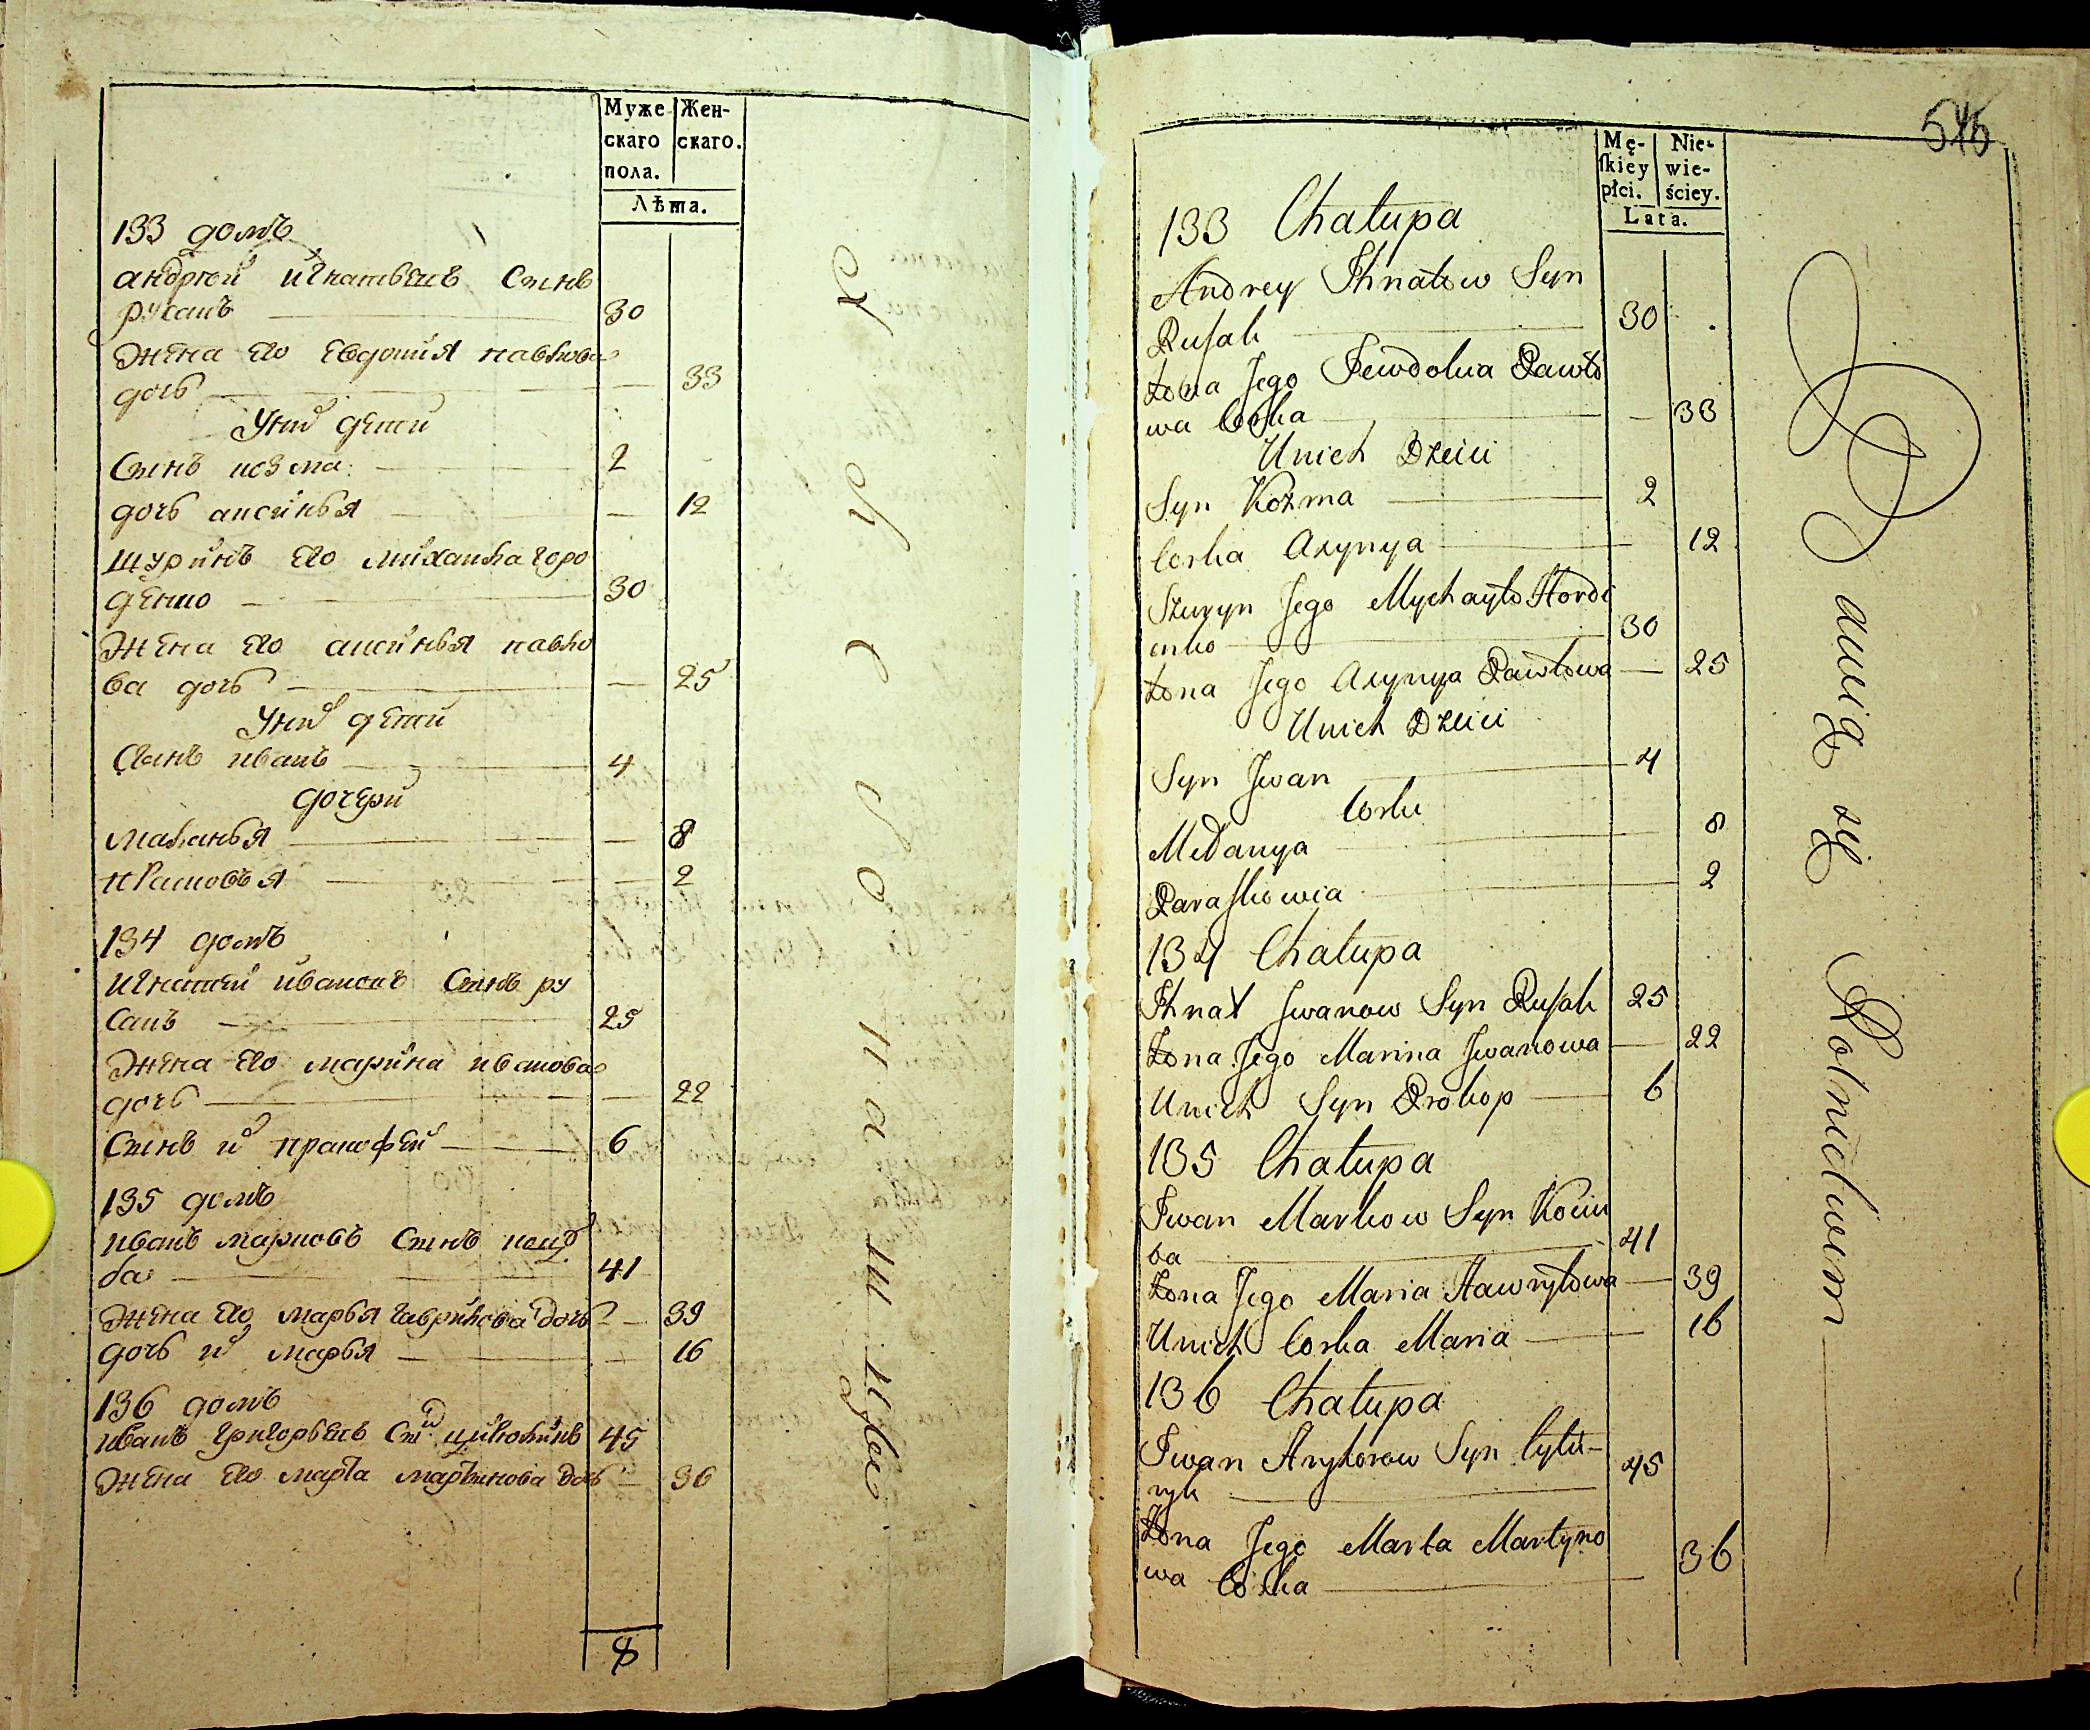 Муже
скаго
пола.
Жен-
скаго.
Лѣта.
133 домъ
андрюй игнатьевъ сынъ
русакъ 30
жена его евдокия павлова
дочь — 33
у них дети
Сынъ козма 2
дочь аксинья — 12
шуринъ его михайла горо
денко 30
жена его аксинья павло
ва дочь — 25
у них дети
Сынъ иванъ 4
дочери
маланья — 8
прасковья — 2
134 домъ
игнатий ивановъ Сынъ ру
сакъ 25
жена его марина иванова
дочь — 22
Сынъ их пракофей 6
135 домъ
иванъ марковъ Сынъ коцю
ба 41
жена его марья гаврилова дочь — 39
дочь их марья — 16
136 домъ
иванъ григорьевъ Сынъ цилюрикъ 45
жена его марта мартинова дочь — 36
8
545
Mę-
ſkiey
płci.
Nie-
wie-
ściey.
Lata.
133 Chałupa
Andrey Ihnatow Syn
Rusak 30
Żona Jego Jewdokia Pawło
wa Corka — 33
Unich Dzieci
Syn Kozma 2
Corka Axynya 12
Szuryn Jego Mychayło Hordi
enko 30
Żona Jego Axynya Pawłowa — 25
Unich Dzieci
Syn Jwan 4
Corki
Mełanya 8
Paraskowia 2
134 Chałupa
Ihnat Jwanow Syn Rusak 25
Żona Jego Marina Jwanowa — 22
Unich Syn Prokop 6
135 Chałupa
Iwan Markow Syn Kociu
ba 41
Żona Jego Maria Hawryłowa — 39
Unich Corka Maria — 16
136 Chałupa
Iwan Hryhorow Syn Cylu-
ryk 45
Żona Jego Marta Martyno
wa Corka 36
Bawią się Rolnictwem